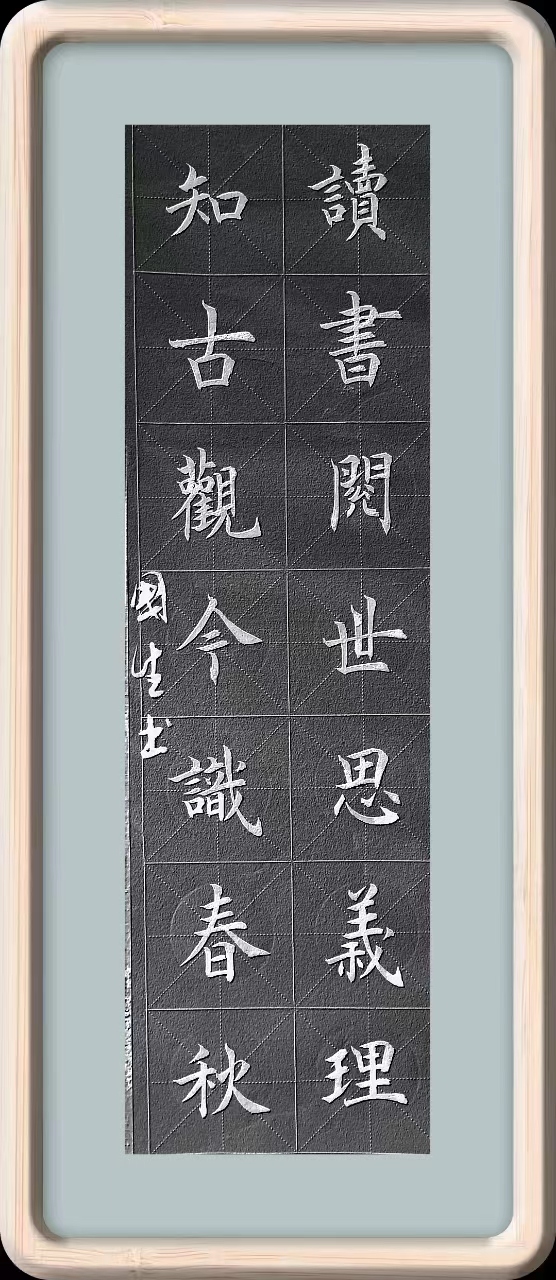 讀書閱世思義理
知古觀今識春秋
國生书